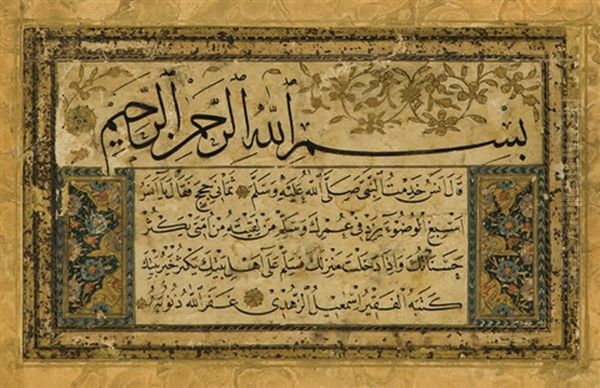 بِسْمِ اللهِ الرَّحْمٰنِ الرَّحِيمِ
قال انس خدمت النبي صلى الله عليه وسلم ثماني حجج فقال يا انس
اسبغ الوضوء يزد في عمرك وسلم من لقيته من امتي تكثر
حسناتك واذا دخلت منزلك فسلم على اهل بيتك يكثر خير بيتك
كتبه الفقير اسمعيل الزهدي غفر الله ذنوبه